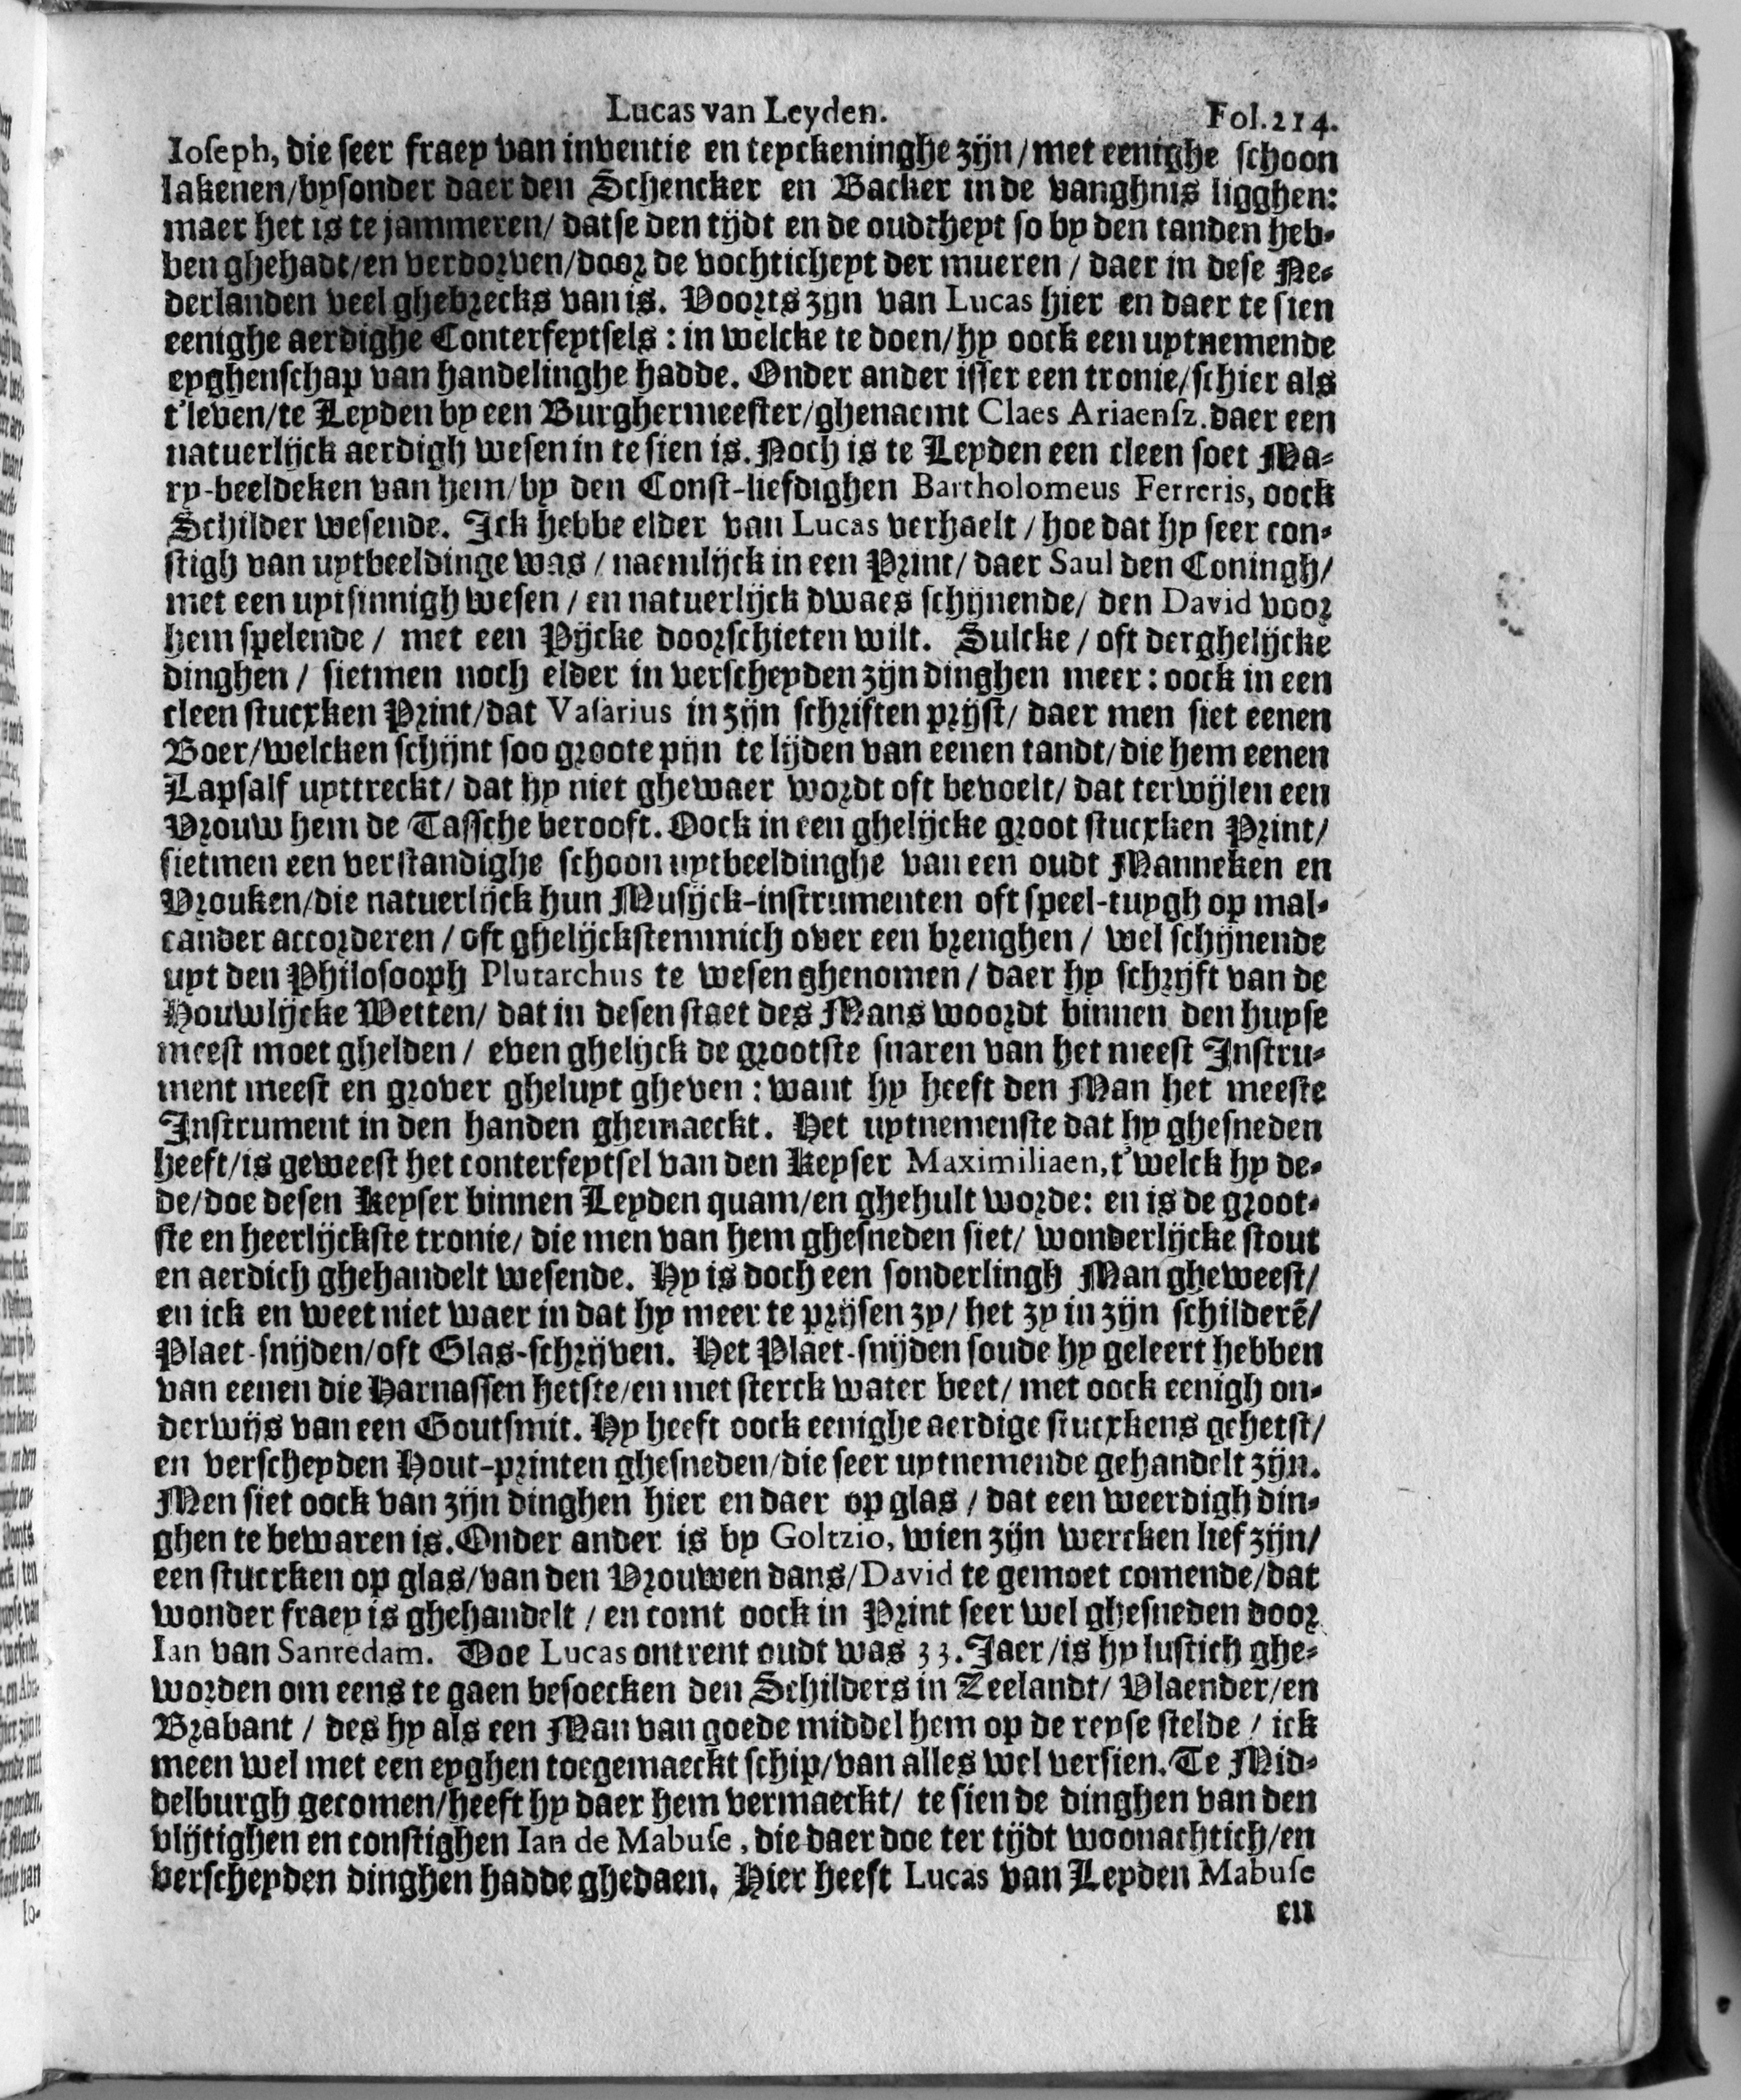 Lucas van Leyden. Fol.214.
Ioseph, die seer fraey van inventie en teyckeninghe zijn/met eenighe schoon
lakenen/bysonder daer den Schencker en Backer in de vanghnis ligghen:
maer het is te jammeren/ datse den tijdt en de oudtheyt so by den tanden heb-
ben ghehadt/en verdorven/door de vochticheyt der mueren / daer in dese Ne-
derlanden veel ghebrecks van is. Voorts zijn van Lucas hier en daer te sien
eenighe aerdighe Conterfeytsels : in welcke te doen/hy oock een uytnemende
eyghenschap van handelinghe hadde. Onder ander isser een tronie/schier als
t'leven/te Leyden by een Burghermeester/ghenaemt Claes Ariaensz. daer een
natuerlijck aerdigh wesen in te sien is. Noch is te Leyden een cleen soet Ma-
ry-beeldeken van hem/by den Const-liefdighen Bartholomeus Ferreris, oock
Schilder wesende. Ick hebbe elder van Lucas verhaelt / hoe dat hy seer con-
stigh van uytbeeldinge was / naemlijck in een Print/ daer Saul den Coningh/
met een uytsinnigh wesen / en natuerlijck dwaes schijnende/ den David voor
hem spelende / met een Pijcke doorschieten wilt. Sulcke / oft derghelijcke
dinghen / sietmen noch elder in verscheyden zijn dinghen meer : oock in een
cleen stucxken Print/dat Vasarius in zijn schriften prijst/ daer men siet eenen
Boer/welcken schijnt soo groote pijn te lijden van eenen tandt/die hem eenen
Lapsalf uyttreckt/ dat hy niet ghewaer wordt oft bevoelt/ dat terwijlen een
Vrouw hem de Tassche berooft. Oock in een ghelijcke groot stucxken Print/
sietmen een verstandighe schoon uytbeeldinghe van een oudt Manneken en
Vrouken/die natuerlijck hun Musijck-instrumenten oft speel-tuygh op mal-
cander accorderen / oft ghelijckstemmich over een brenghen / wel schijnende
uyt den Philosooph Plutarchus te wesen ghenomen / daer hy schrijft van de
Houwlijcke Wetten/ dat in desen staet des Mans woordt binnen den huyse
meest moet ghelden / even ghelijck de grootste snaren van het meest Instru-
ment meest en grover gheluyt gheven : want hy heeft den Man het meeste
Instrument in den handen ghemaeckt. Het uytnemenste dat hy ghesneden
heeft/is geweest het conterfeytsel van den Keyser Maximiliaen, t'welck hy de-
de/doe desen Keyser binnen Leyden quam/en ghehult worde: en is de groot-
ste en heerlijckste tronie/ die men van hem ghesneden siet/ wonderlijcke stout
en aerdich ghehandelt wesende. Hy is doch een sonderlingh Man gheweest/
en ick en weet niet waer in dat hy meer te prijsen zy/ het zy in zijn schilderē/
Plaet-snijden/oft Glas-schrijven. Het Plaet-snijden soude hy geleert hebben
van eenen die Harnassen hetste/en met sterck water beet/ met oock eenigh on-
derwijs van een Goutsmit. Hy heeft oock eenighe aerdige stucxkens gehetst/
en verscheyden Hout-printen ghesneden/die seer uytnemende gehandelt zijn.
Men siet oock van zijn dinghen hier en daer op glas / dat een weerdigh din-
ghen te bewaren is. Onder ander is by Goltzio, wien zijn wercken lief zijn/
een stucxken op glas/van den Vrouwen dans/David te gemoet comende/dat
wonder fraey is ghehandelt / en comt oock in Print seer wel ghesneden door
Ian van Sanredam. Doe Lucas ontrent oudt was 33. Jaer/is hy lustich ghe-
worden om eens te gaen besoecken den Schilders in Zeelandt/ Vlaender/en
Brabant / des hy als een Man van goede middel hem op de reyse stelde / ick
meen wel met een eyghen toegemaeckt schip/van alles wel versien. Te Mid-
delburgh gecomen/heeft hy daer hem vermaeckt/ te sien de dinghen van den
vlijtighen en constighen Ian de Mabuse, die daer doe ter tijdt woonachtich/en
verscheyden dinghen hadde ghedaen. Hier heeft Lucas van Leyden Mabuse
en